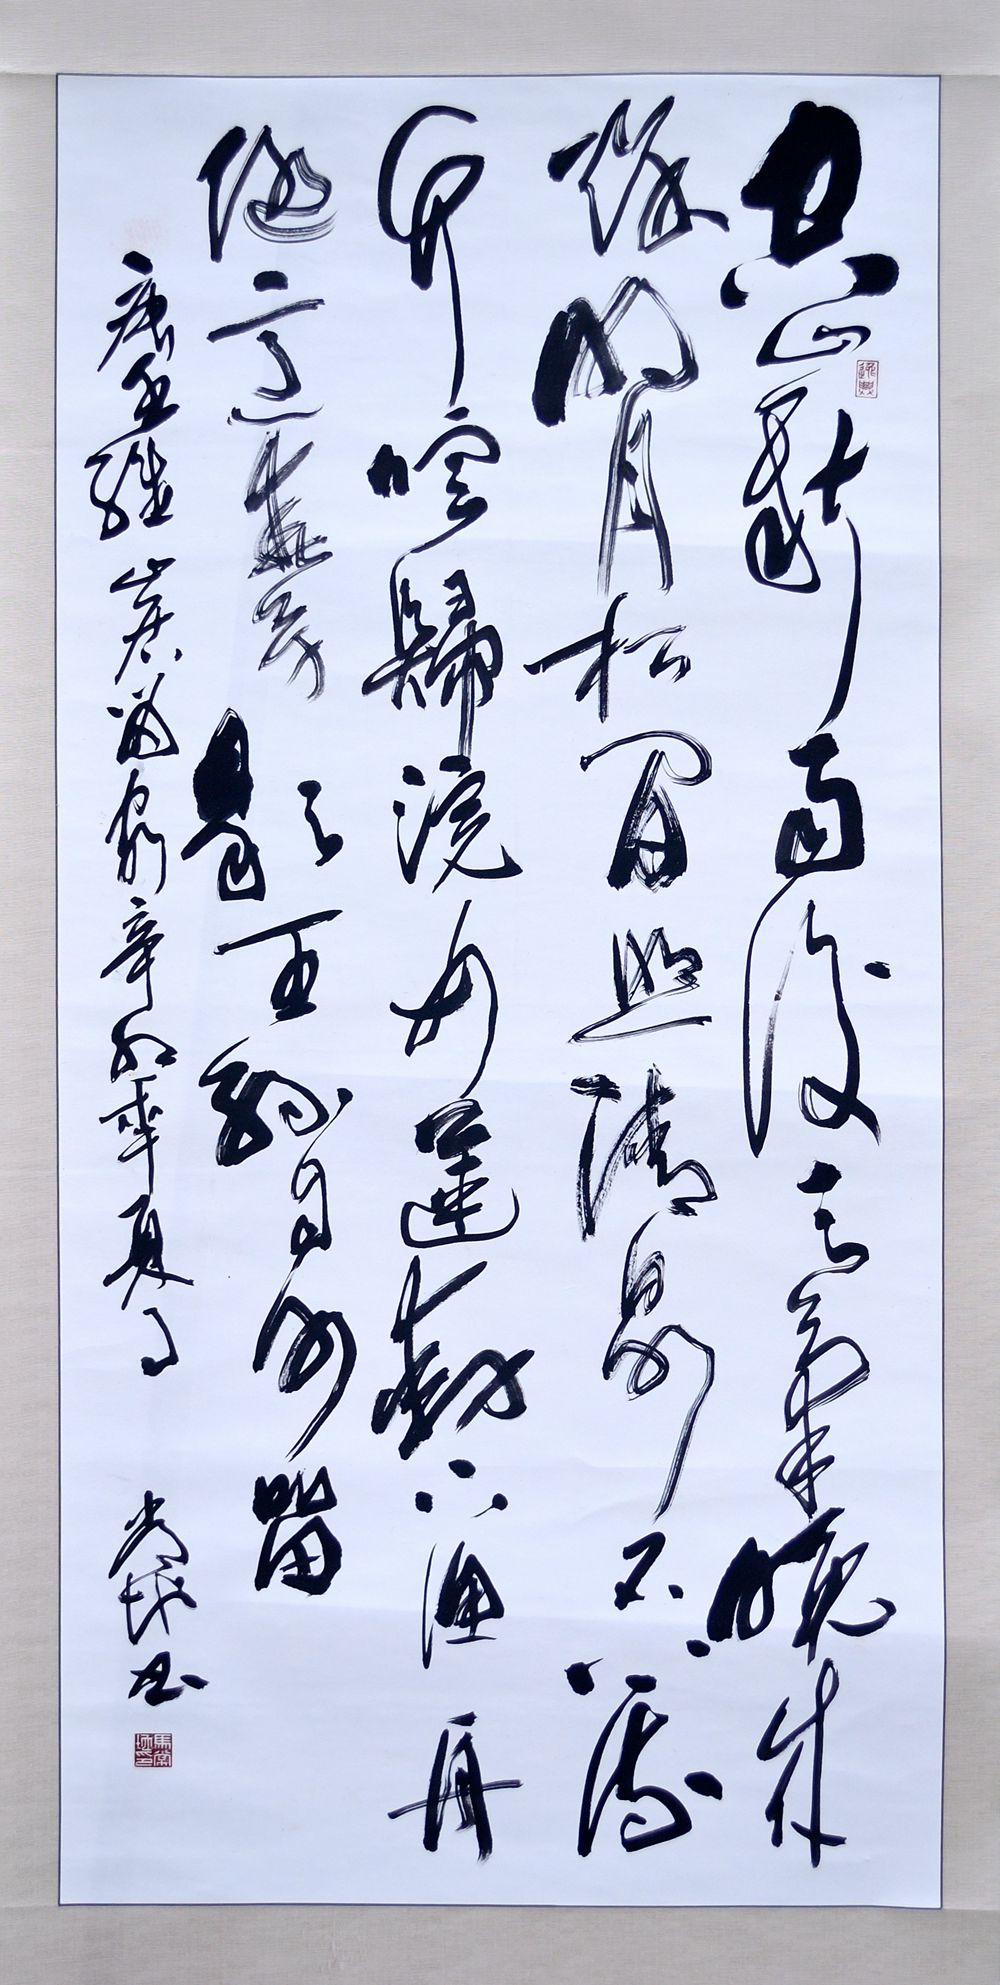 空山新雨後天氣晚來
秋明月松間照清泉石上流
竹喧歸浣女蓮動下漁舟
隨意春芳歇王孫自可留
唐王維山居 辛卯年夏月 书